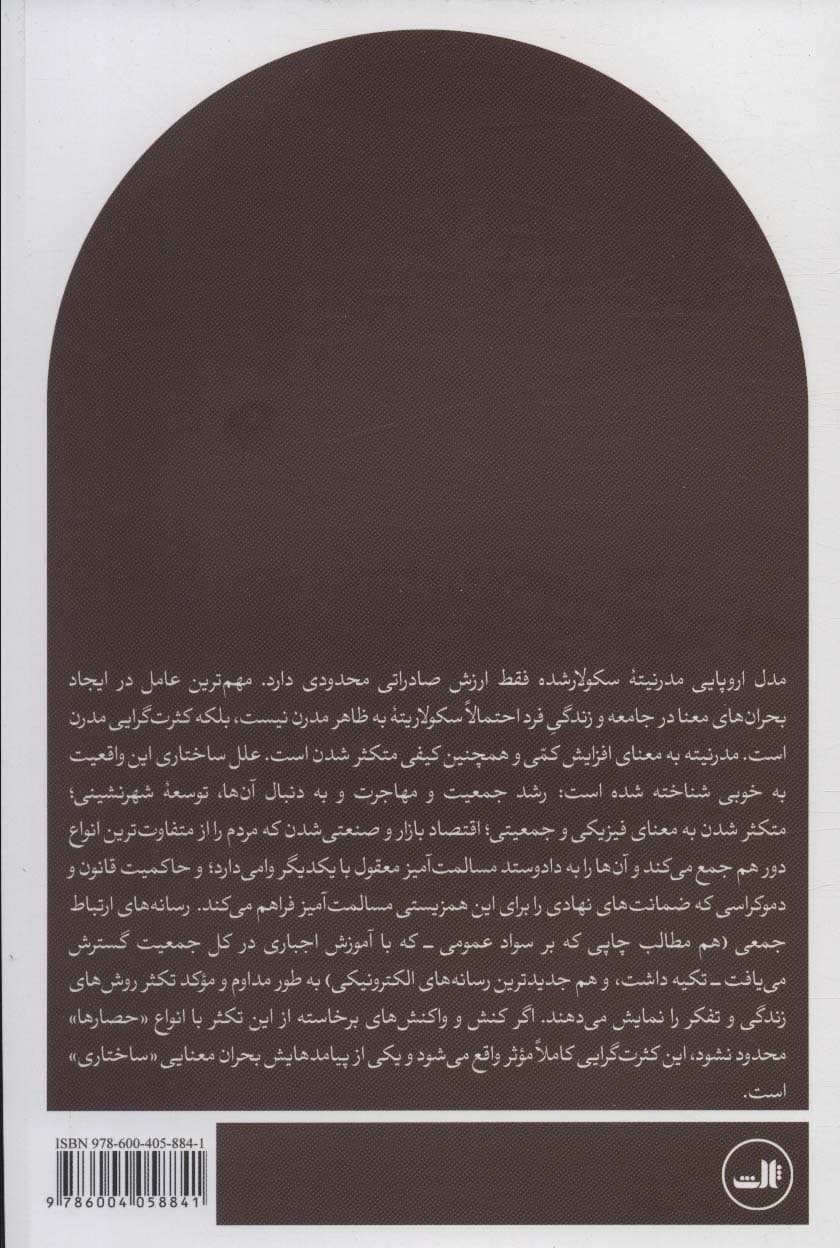 مدل اروپایی مدرنیتهٔ سکولارشده فقط ارزش صادراتی محدودی دارد. مهم‌ترین عامل در ایجاد
بحران‌های معنا در جامعه و زندگیِ فرد احتمالاً سکولاریتهٔ به ظاهر مدرن نیست، بلکه کثرت‌گرایی مدرن
است. مدرنیته به معنای افزایش کمّی و همچنین کیفی متکثر شدن است. علل ساختاری این واقعیت
به خوبی شناخته شده است: رشد جمعیت و مهاجرت و به دنبال آن‌ها، توسعهٔ شهرنشینی؛
متکثر شدن به معنای فیزیکی و جمعیتی؛ اقتصاد بازار و صنعتی‌شدن که مردم را از متفاوت‌ترین انواع
دور هم جمع می‌کند و آن‌ها را به دادوستد مسالمت‌آمیز معقول با یکدیگر وامی‌دارد؛ و حاکمیت قانون و
دموکراسی که ضمانت‌های نهادی را برای این همزیستی مسالمت‌آمیز فراهم می‌کند. رسانه‌های ارتباط
جمعی (هم مطالب چاپی که بر سواد عمومی ـ که با آموزش اجباری در کل جمعیت گسترش
می‌یافت ـ تکیه داشت، و هم جدیدترین رسانه‌های الکترونیکی) به طور مداوم و مؤکد تکثر روش‌های
زندگی و تفکر را نمایش می‌دهند. اگر کنش و واکنش‌های برخاسته از این تکثر با انواع «حصارها»
محدود نشود، این کثرت‌گرایی کاملاً مؤثر واقع می‌شود و یکی از پیامدهایش بحران معنایی «ساختاری»
است.
ISBN 978-600-405-884-1
9 786004 058841
ثالث